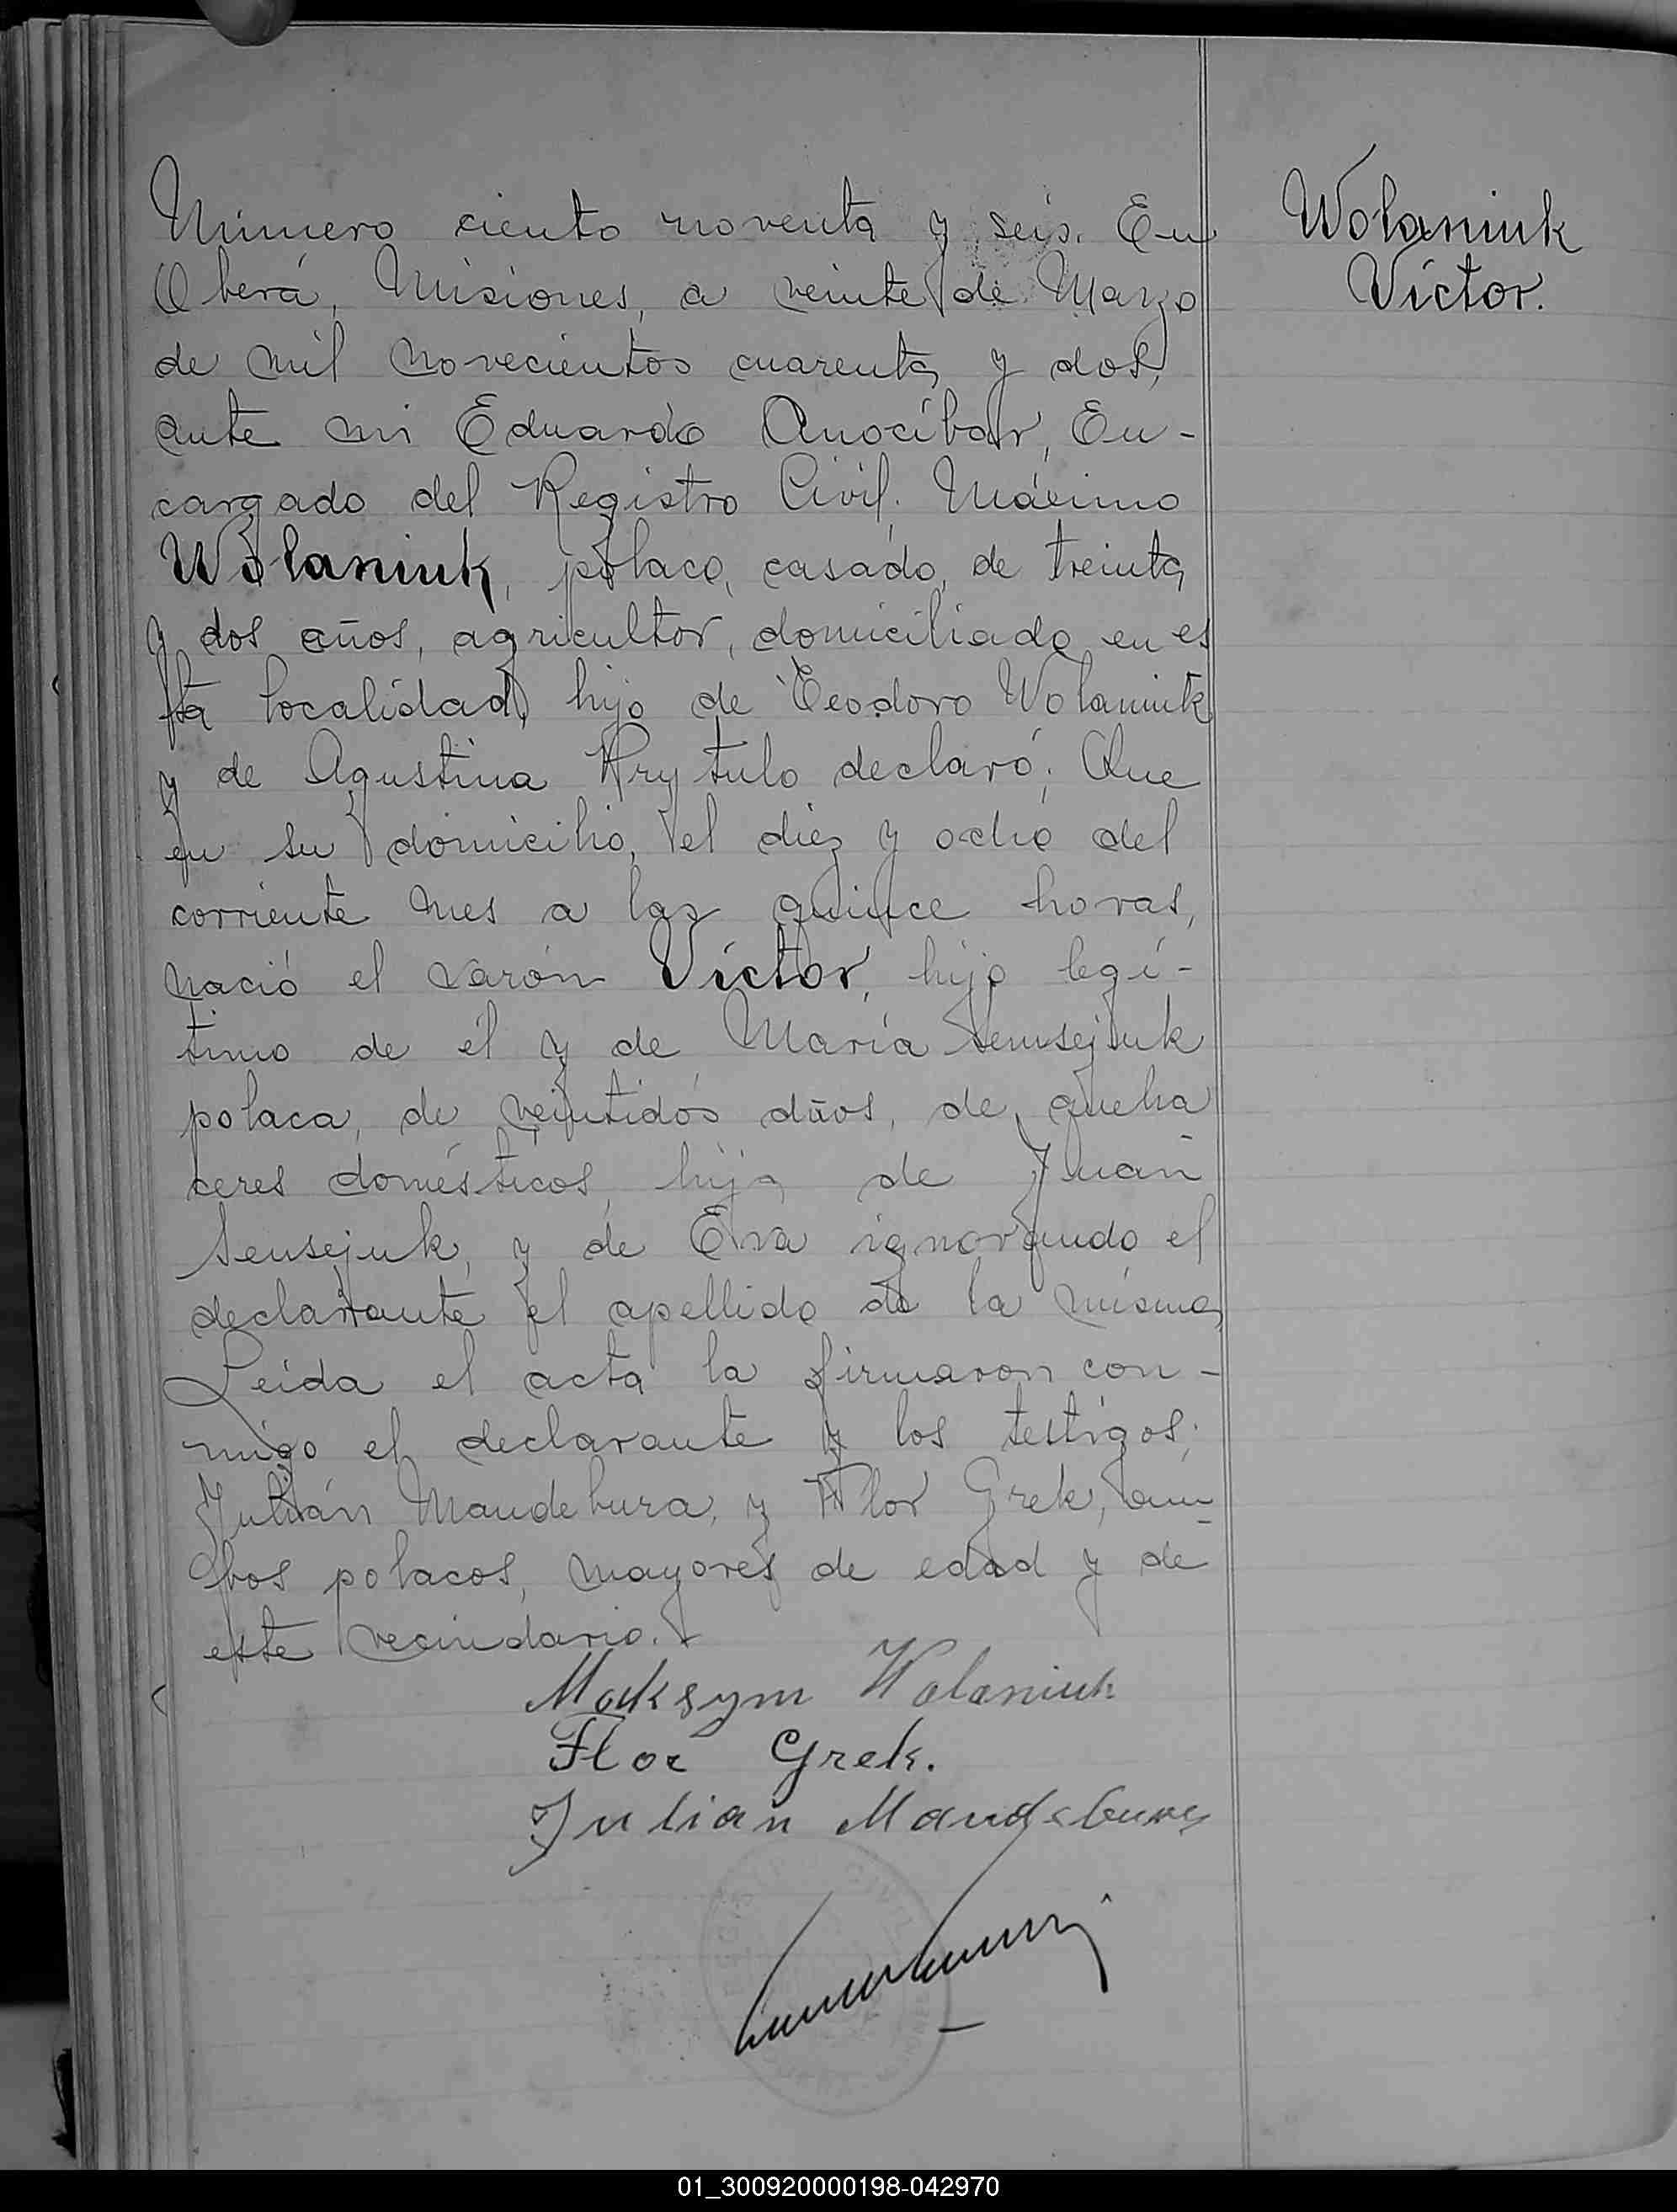 Número ciento noventa y seis. En
Oberá, Misiones, a veinte de Marzo
de mil novecientos cuarenta y dos,
ante mi Eduardo Anocíbar, En-
cargado del Registro Civil. Máximo
Wolaniuk, polaco, casado, de treinta
y dos años, agricultor, domiciliado en es
ta localidad, hijo de Teodoro Wolaniuk
y de Agustina Krytulo declaró: Que
en su domicilio, el diez y ocho del
corriente mes a las quince horas,
nació el varón Víctor, hijo legí-
timo de él y de María Sensejuk
polaca, de veintidós años, de queha
ceres domésticos, hija de Juan
Sensejuk, y de Eva ignorando el
declarante el apellido de la misma,
Leida el acta la firmaron con-
migo el declarante y los testigos:
Julián Mandebura, y Flor Grek, am-
bos polacos, mayores de edad y de
este vecindario.
Wolaniuk
Víctor.
Maksym Wolaniuk
Flor Grek.
Julian Mandebura
01_300920000198-042970